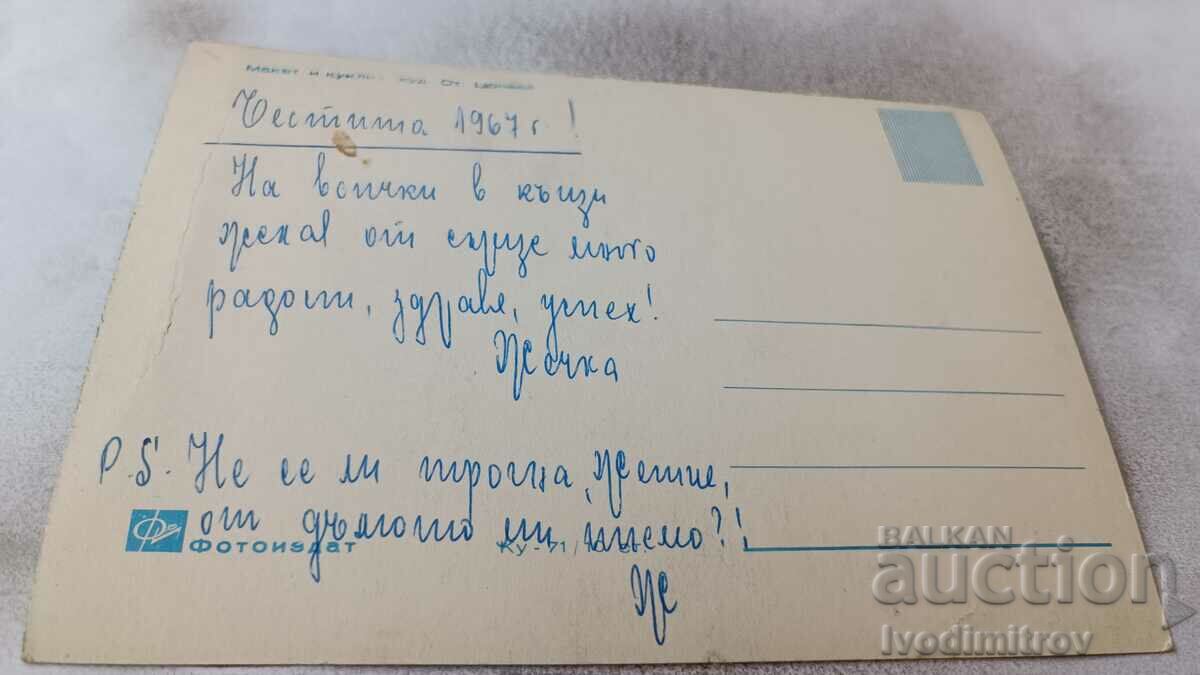 Макет и кукли: худ. Ст.
Честита 1967 г!
На всички в къщи
желая от сърце много
радости, здраве, успех!
Жечка
P.S. Не се ли трогна, Жетие,
от дългото ми писмо?!
ФОТОИЗДАТ
Же
BALKAN
auction
Ivodimitrov